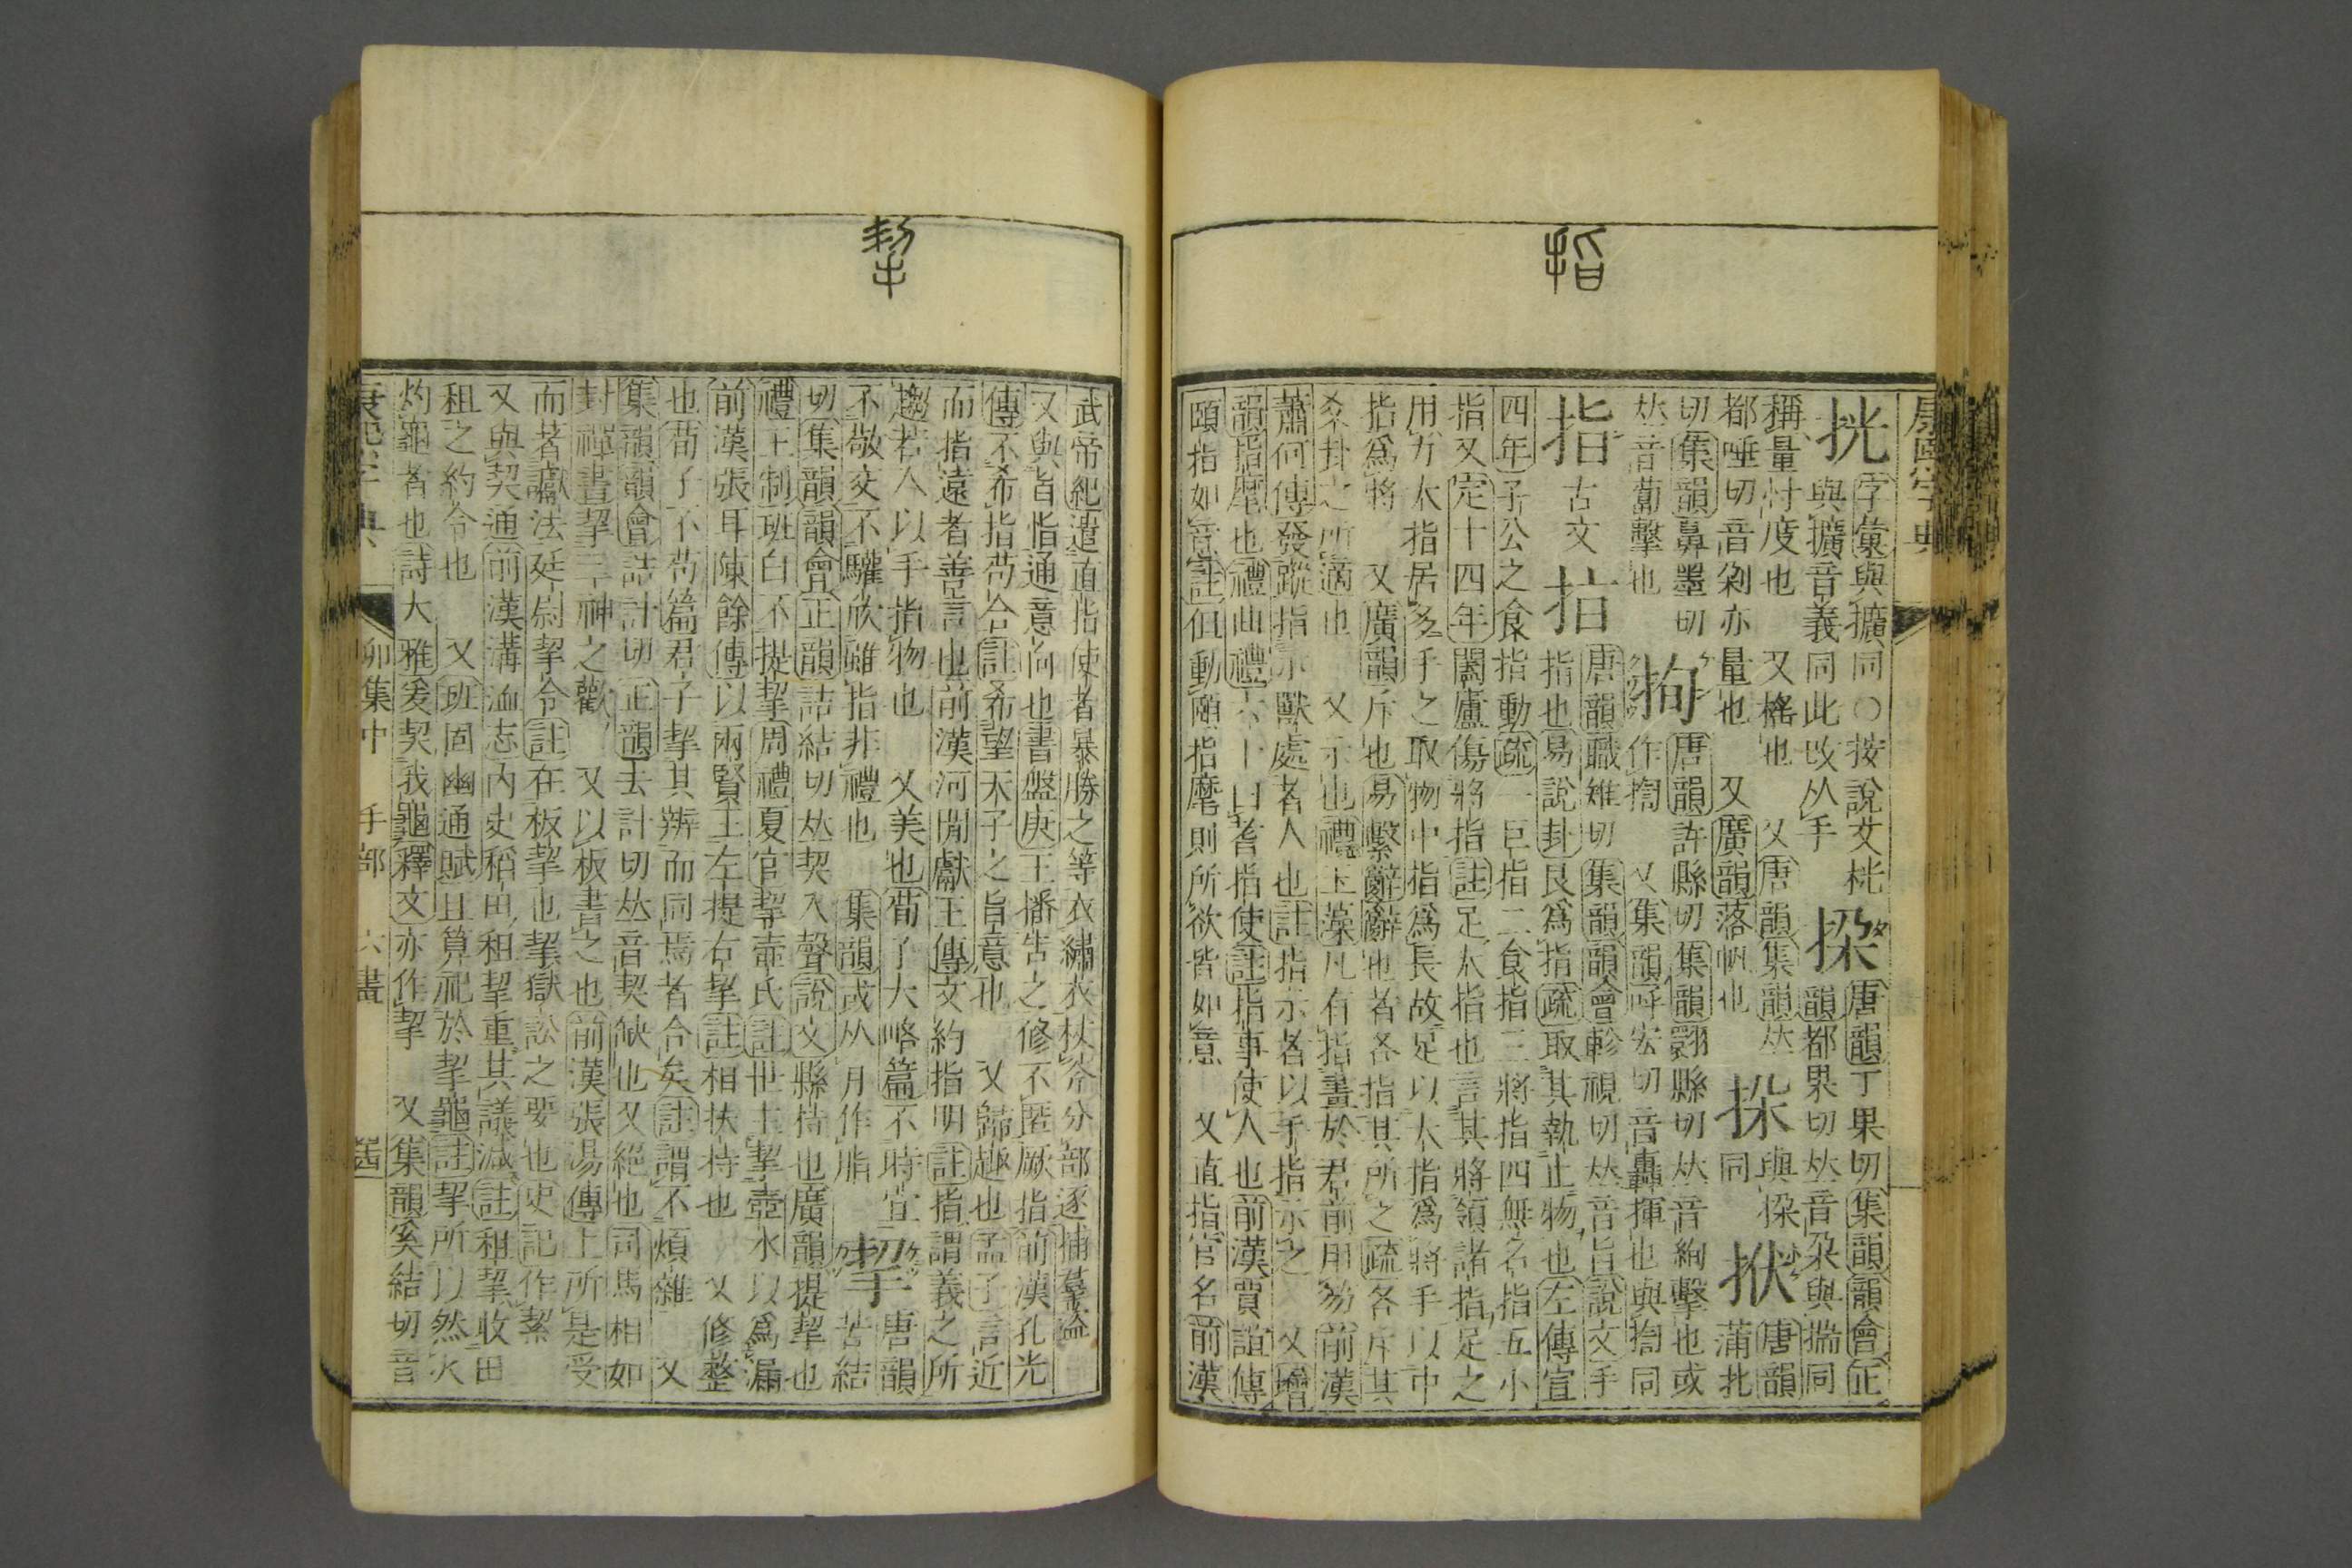 指
挈
康熙字典
挄字彙與擴同○按說文桄
與擴音義同此改从手
挅唐韻丁果切集韻韻會正
韻都果切𠀤音朶與揣同
稱量忖度也 又㩧也 又唐韻集韻𠀤
都唾切音剁亦量也 又廣韻落帆也
挆與挅
同
拺唐韻
蒲北
切集韻鼻墨切
𠀤音蔔擊也
拘唐韻許縣切集韻翾縣切𠀤音絢擊也或
作揈 又集韻呼宏切音轟揮也與揈同
指古文𢫾唐韻職雉切集韻韻會軫視切𠀤音旨說文手
指也易說卦艮爲指疏取其執止物也左傳宣
四年子公之食指動疏一巨指二食指三將指四無名指五小
指又定十四年闔廬傷將指註足大指也言其將領諸指足之
用力大指居多手之取物中指爲長故足以大指爲將手以中
指爲將 又廣韻斥也易繫辭辭也者各指其所之疏各斥其
爻卦之所適也 又示也禮玉藻凡有指畫於君前用笏前漢
蕭何傳發蹤指示獸處者人也註指示者以手指示之 又增
韻指麾也禮曲禮六十曰耆指使註指事使人也前漢賈誼傳
頤指如意註但動頤指麾則所欲皆如意 又直指官名前漢
武帝紀遣直指使者暴勝之等衣繡衣杖斧分部逐捕羣盜
又與旨恉通意向也書盤庚王播告之修不匿厥指前漢孔光
傳不希指苟合註希望天子之旨意也 又歸趣也孟子言近
而指遠者善言也前漢河閒獻王傳文約指明註指謂義之所
趨若人以手指物也 又美也荀子大略篇不時宜
不敬交不驩欣雖指非禮也 集韻或从月作脂
挈唐韻
苦結
切集韻韻會正韻詰結切𠀤契入聲說文縣持也廣韻提挈也
禮王制班白不提挈周禮夏官挈壺氏註世主挈壺水以爲漏
前漢張耳陳餘傳以兩賢王左提右挈註相扶持也 又修整
也荀子不苟篇君子挈其辨而同焉者合矣註謂不煩雜 又
集韻韻會詰計切正韻去計切𠀤音契缺也又絕也司馬相如
封禪書挈三神之歡 又以板書之也前漢張湯傳上所是受
而著讞法廷尉挈令註在板挈也挈獄訟之要也史記作絜
又與契通前漢溝洫志內史稻田租挈重其議減註租挈收田
租之約令也 又班固幽通賦旦算祀於挈龜註挈所以然火
灼龜者也詩大雅爰契我龜釋文亦作挈 又集韻奚結切音
康熙字典 卯集中 手部 六畫